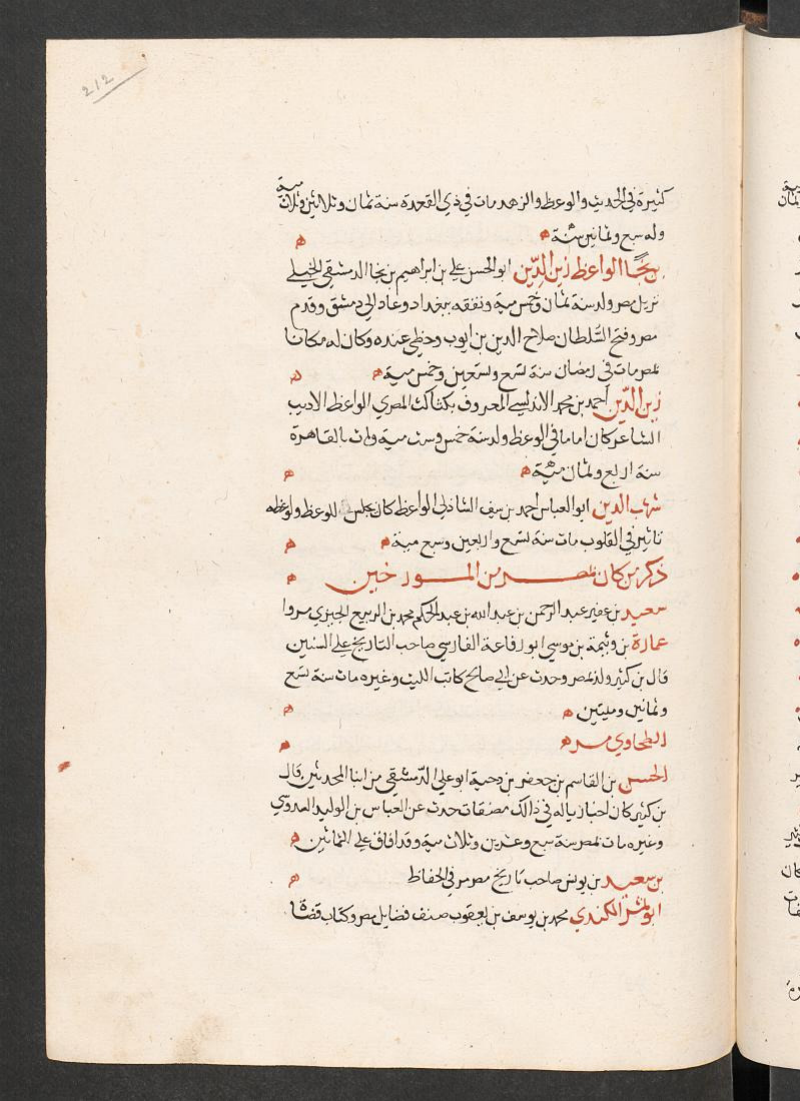 212
كثيرة في الحديث والوعظ والزهد مات في ذي القعدة سنة ثمان وثلاثين وثلاث مية
وله سبع وثمانين سنة
بن نجا الواعظ زين الدين ابو الحسن علي بن ابراهيم بن نجا الدمشقي الحنبلي
نزيل مصر ولد سنة ثمان وخمس مية وتفقه ببغداد وعاد الي دمشق وقدم
مصر وفتح السلطان صلاح الدين بن ايوب وحظي عنده وكان له مكانا
بمصر مات في رمضان سنة تسع وتسعين وخمس مية
زين الدين احمد بن محمد الاندلسي المعروف بكتاكت المصري الواعظ الاديب
الشاعر كان اماما في الوعظ ولد سنة خمس وست مية ومات بالقاهرة
سنة اربع وثمان مية
شهاب الدين ابو العباس احمد بن سيف الشاذلي الواعظ كان يجلس للوعظ ولوعظه
تاثير في القلوب مات سنة تسع واربعين وسبع مية
ذكر من كان بمصر من المورخين
سعيد بن عفير عبد الرحمن بن عبد الله بن عبد الحكم محمد بن الربيع الجيزي مروا
عمارة بن وثيمة بن موسي ابو رفاعة الفارسي صاحب التاريخ علي السنين
قال بن كثير ولد بمصر وحدث عن ابي صالح كاتب الليث وغيره مات سنة تسع
وثمانين وميتين
الطحاوي مر
الحسن بن القاسم بن جعفر بن دحية ابو علي الدمشقي من ابنا المحدثين قال
بن كثير كان اخباريا له في ذالك مصنفات حدث عن العباس بن الوليد العدوي
وغيره مات بمصر سنة سبع وعشرين وثلاث مية وقد افاق علي الثمانين
بن سعيد بن يونس صاحب تاريخ مصر مر في الحفاظ
ابو عمر الكندي محمد بن يوسف بن يعقوب صنف فضايل مصر وكتاب قضاة